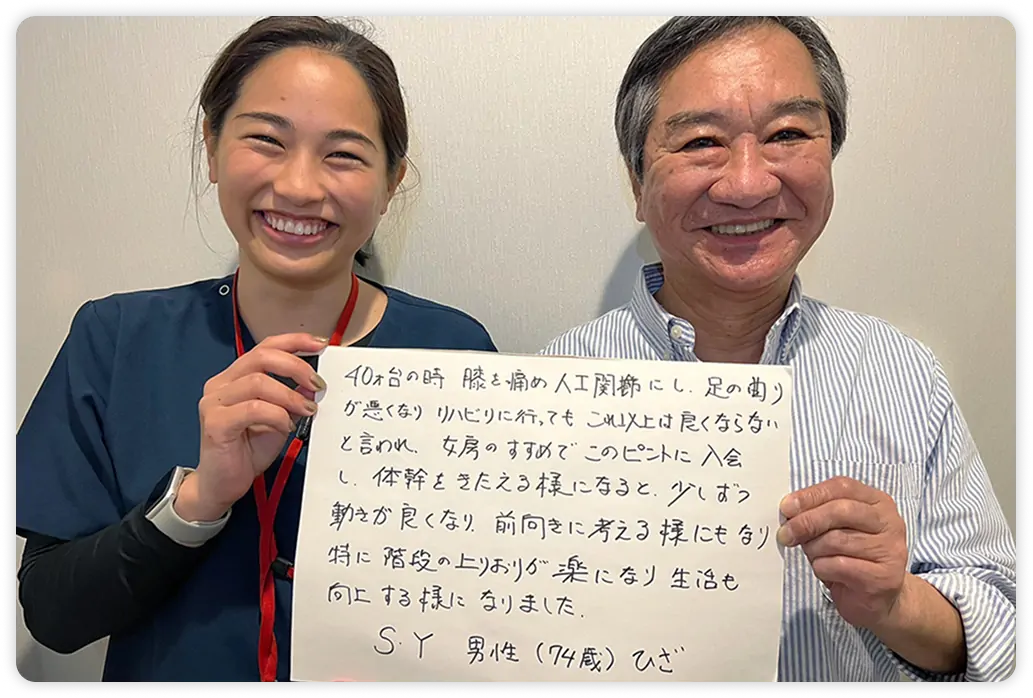 40才台の時 膝を痛め人工関節にし、足の曲り
が悪くなり リハビリに行っても これ以上は良くならない
と言われ、女房のすすめで このピントに入会
し、体幹をきたえる様になると、少しずつ
動きが良くなり、前向きに考える様にもなり
特に 階段の上りおりが楽になり 生活も
向上する様に なりました.
S.Y 男性(74歳)ひざ